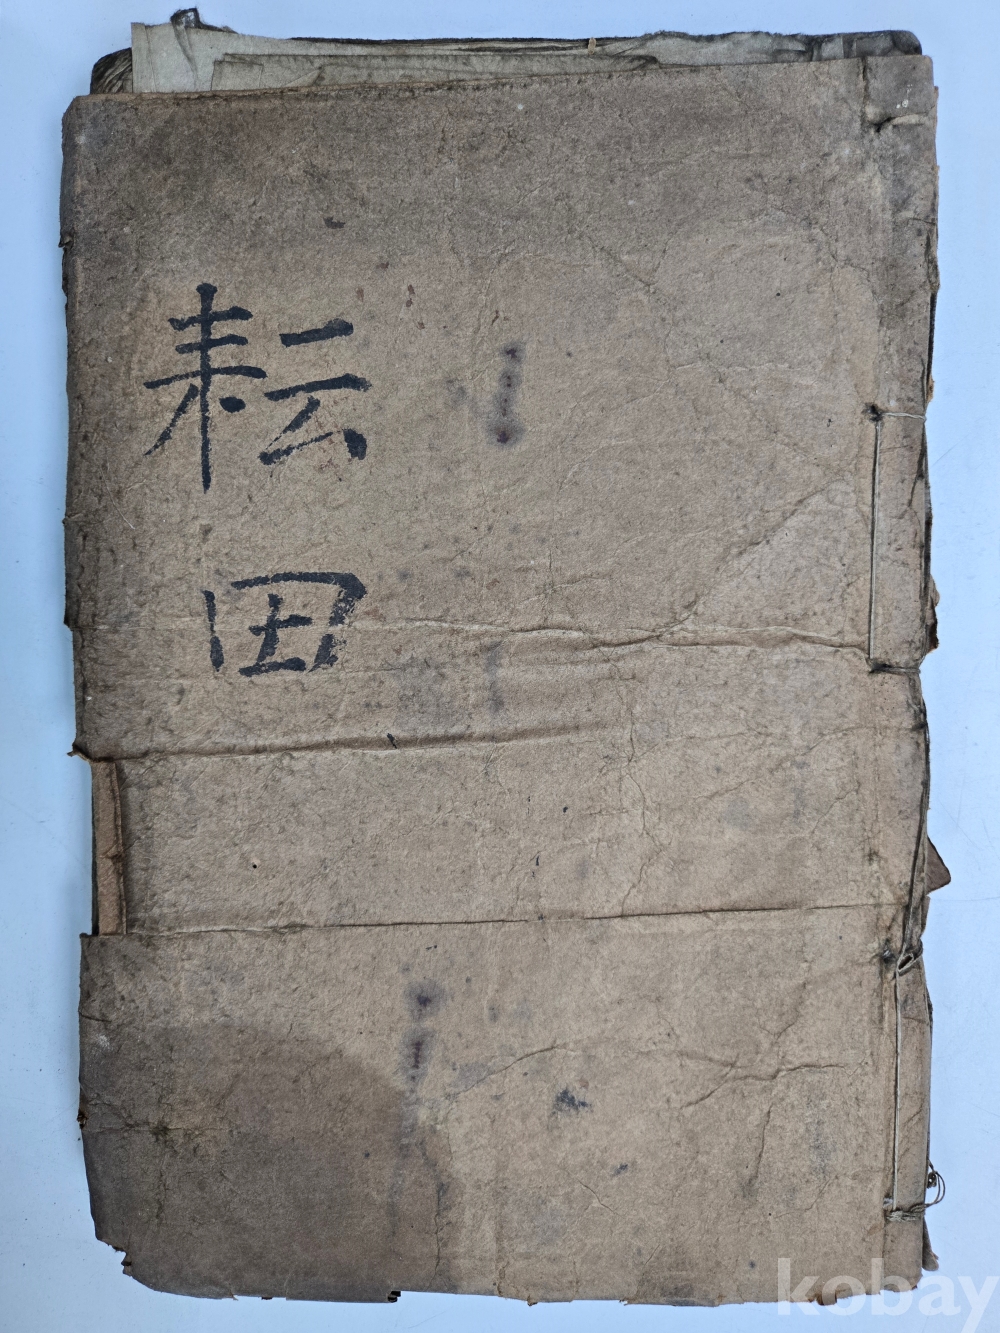 耘田
kobay